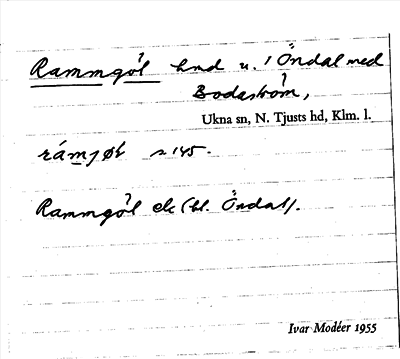 Rammgöl hmd u. 1 Öndal med
Bodaström,
Ukna sn, N. Tjusts hd, Klm. l.
s 145.
Rammgöl ek (bl. Öndal).
Ivar Modéer 1955